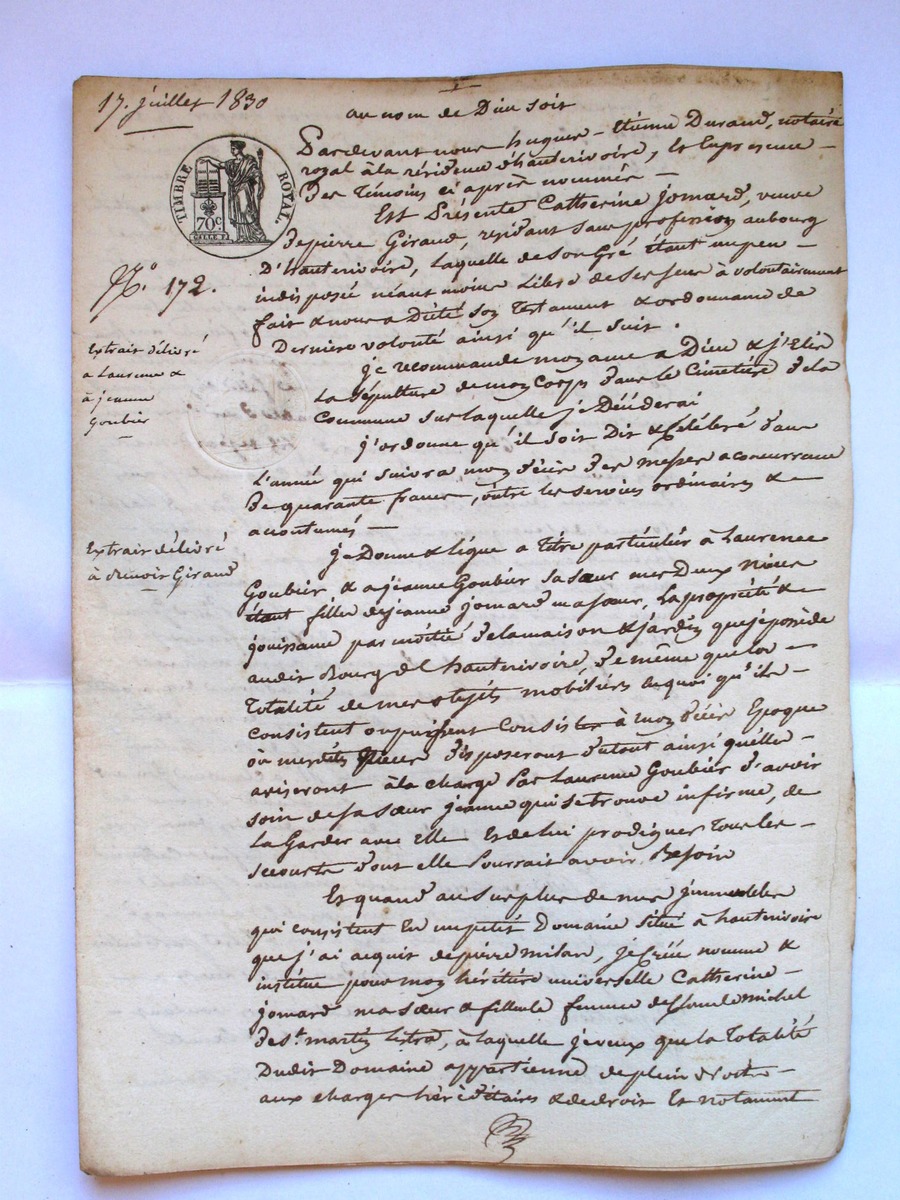 17. juillet 1830
au nom de Dieu soit
TIMBRE ROYAL
70c.
N.° 172.
Extrait délivré
a Laurence &
à jeanne
Goubier
Extrait délivré
à Giraud
Pardevant nous hugues - Etienne Durand, notaire
royal à la résidence d'hauterivoire, & En presence -
Des Témoins ci après nommés -
Est Présente Catherine jomard, veuve
De pierre Giraud, résidant sans profession au bourg
D'hauterivoire, laquelle de son Gré étant un peu -
indisposée néant moins Libre de ses sens à volontairement
fait & nous a Dicté son Testament & ordonnance de
Derniere volonté ainsi qu'il suit.
je recommande mon ame a Dieu & j'Elis
La sépulture de mon corps Dans le Cimetière De la
Commune sur laquelle je Décéderai
j'ordonne qu'il soit Dit & Célébré Dans
L'année qui suivra mon décès des messes a concurrance
De quarante francs, outre les services ordinaires & -
acoutumés -
je Donne & légue a titre particulier à Laurence
Goubier & a jeanne Goubier sa sœur mes Deux nièces
étant filles de jeanne jomard ma sœur, La propriété & -
jouissance par moitié De la maison & jardin que je possède
audit Bourg d'hauterivoire, De même que la -
Totalité de mes objets mobiliers en quoi qu'ils -
consistent ou puissent consister à mon décès Epoque
où mesdites nièces disposeront du tout ainsi qu'elles -
aviseront à la charge Par Laurence Goubier d'avoir
soin de sa sœur jeanne qui se trouve infirme, de
La Garder avec Elle & de lui prodiguer Tous les -
secours dont elle Pourrait avoir Besoin
Et quand au surplus de mes jmmeubles
qui consistent En un petit Domaine Situé à hauterivoire
que j'ai acquis de pierre milan, je Créé nomme &
institue pour mon héritière universelle Catherine -
jomard ma sœur & filleule femme de Claude michel
De St. martin Lestra, à laquelle je veux que la Totalité
Dudit Domaine appartienne de plein Droit -
aux charges héréditaires & de droit Et notament